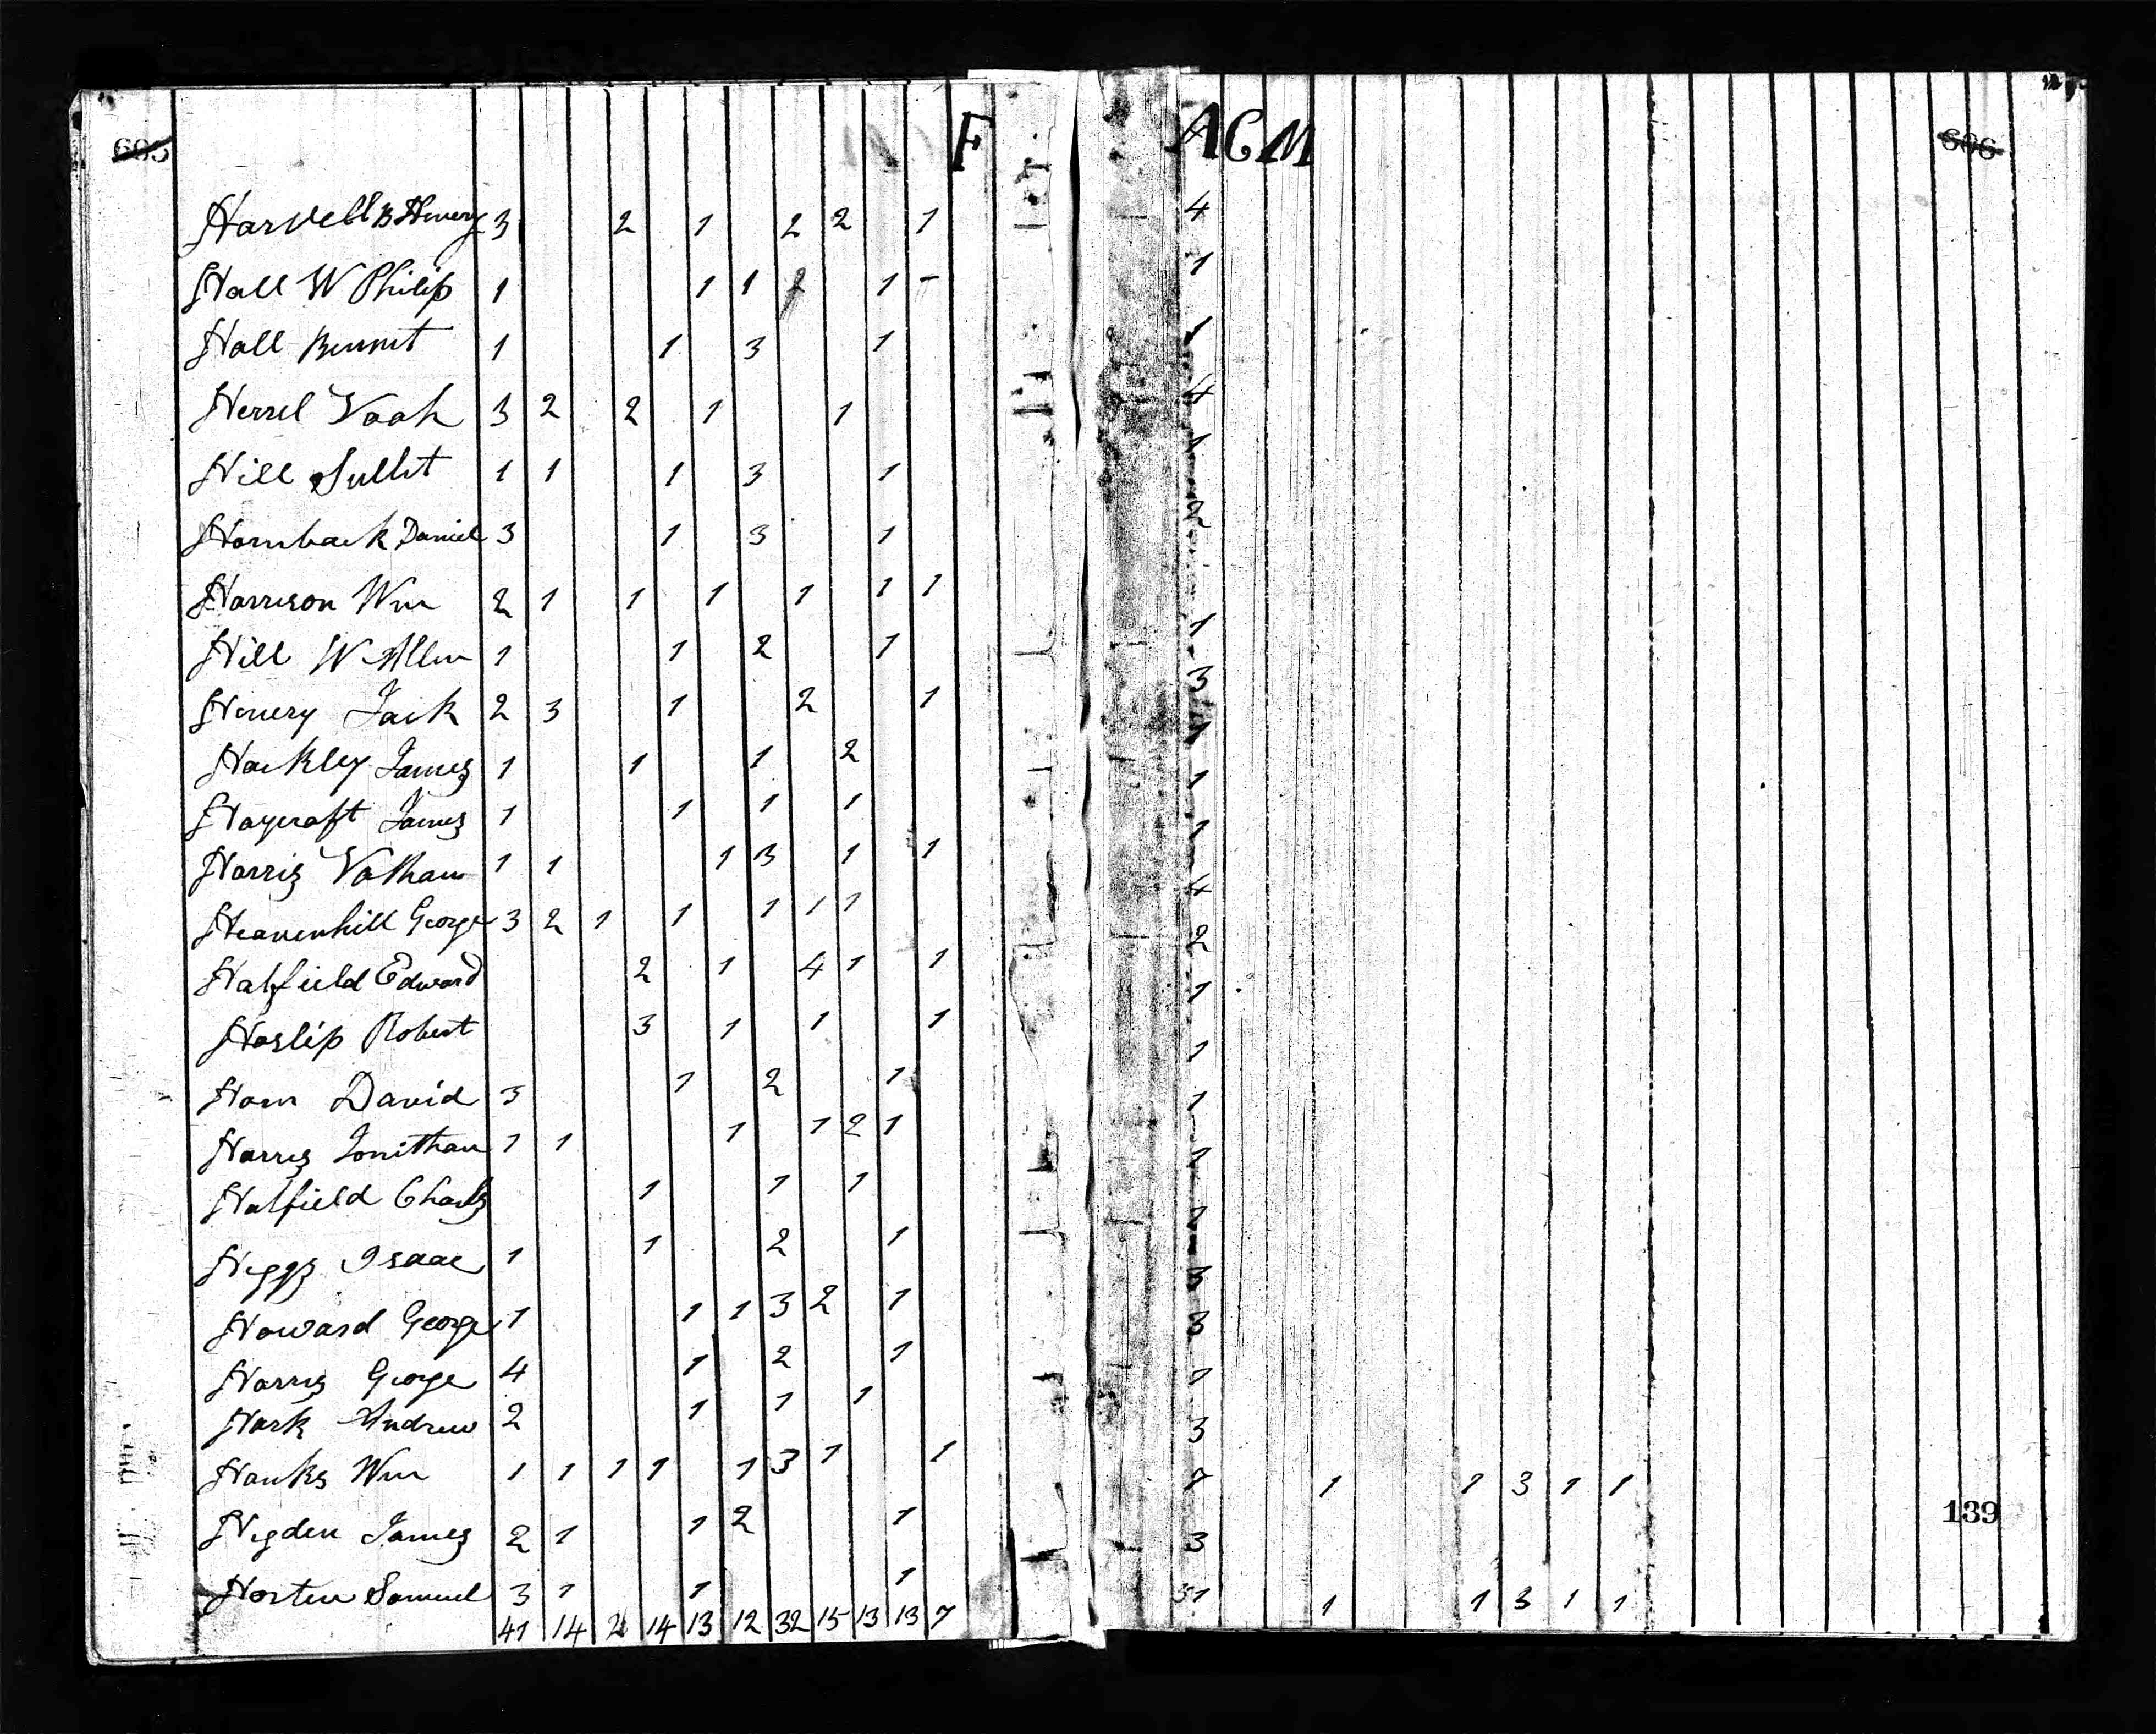 665 F A C M 666
Harvell B Henery 3 2 1 2 2 1 4
Hall W Philip 1 1 1 2 1 - 1
Hall Bennet 1 1 3 1 1
Herrel Noah 3 2 2 1 1 4
Hill 1 1 1 3 1 1
Hornback Daniel 3 1 3 1 2
Harrison Wm 2 1 1 1 1 1 1
Hill W Allen 1 1 2 1 1
Henery Jack 2 3 1 2 1 3
Hackley James 1 1 1 2 1
Haycraft James 1 1 1 1 1
Harris Nathan 1 1 1 3 1 1 1
Heavenhill George 3 2 1 1 1 1 1 4
Hatfield Edward 2 1 4 1 1 2
Haslip Robert 3 1 1 1 1
Horn David 3 1 2 1 1
Harris Jonithan 1 1 1 1 2 1 1
Hatfield Charls 1 1 1 1
Heggs Isaac 1 1 2 1 1
Howard George 1 1 1 3 2 1 3
Harris George 4 1 2 1 3
Hark Andrew 2 1 1 1 1
Hanks Wm 1 1 1 1 1 3 1 1 3
Higden James 2 1 1 2 1 7 1 1 3 1 1
139
Horten Samuel 3 1 1 1 3
41 14 2 14 13 12 32 15 13 13 7 51 1 1 3 1 1